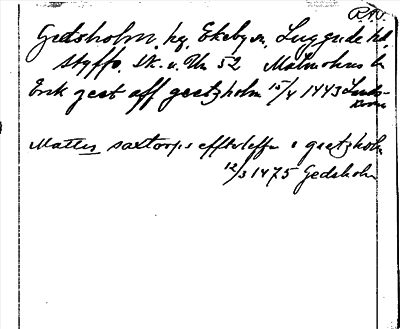 RAV.
Gedsholm, hg, Ekeby sn, Luggude hd,
Styffe, Sk. u. Un 52 Malmöhus l.
Erik geet aff geetzholm 15/4 1443 Lands-
krona
Mattes saxtorps effterleffn i geetzholm
12/3 1475 Gedsholm